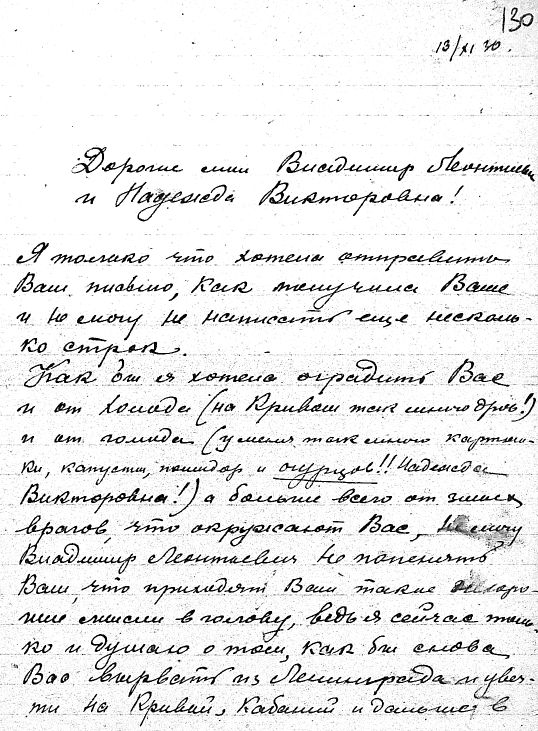 130
13/XI 30.
Дорогие мои Владимир Леонтьевич
и Надежда Викторовна!
Я только что хотела отправить
Вам письмо, как получила Ваше
и не могу не написать еще несколь-
ко строк.
Как бы я хотела оградить Вас
и от холода (на Кривом так много дров!)
и от голода (у меня так много картош-
ки, капусты, помидор и огурцов!! Надежда
Викторовна!) а больше всего от злых
врагов, что окружают Вас, не могу
Владимир Леонтьевич не попенять
Вам, что приходят Вам такие
мысли в голову, ведь я сейчас толь-
ко и думаю о том, как бы снова
Вас вырвать из Ленинграда и увез-
ти на Кривой, Кабаний и дальше в